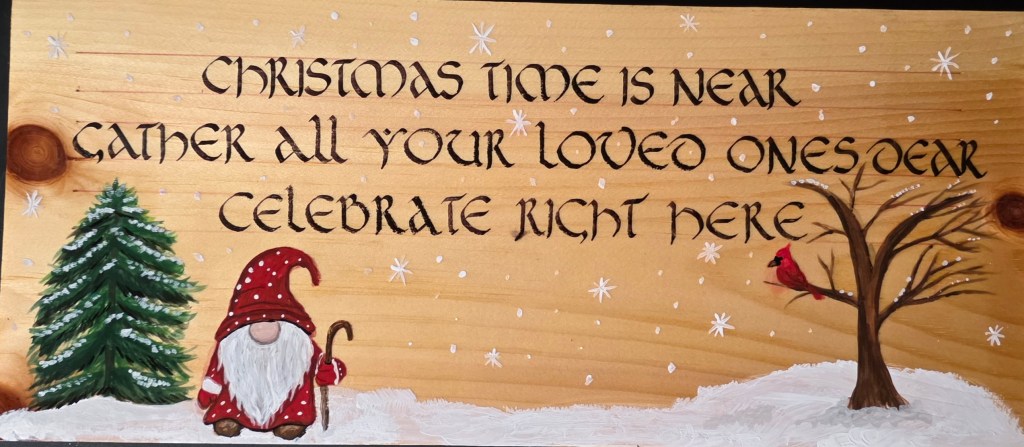 CHRISTMAS TIME IS NEAR
GATHER All YOUR LOVED ONES DEAR
CELEBRATE RIGHT HERE